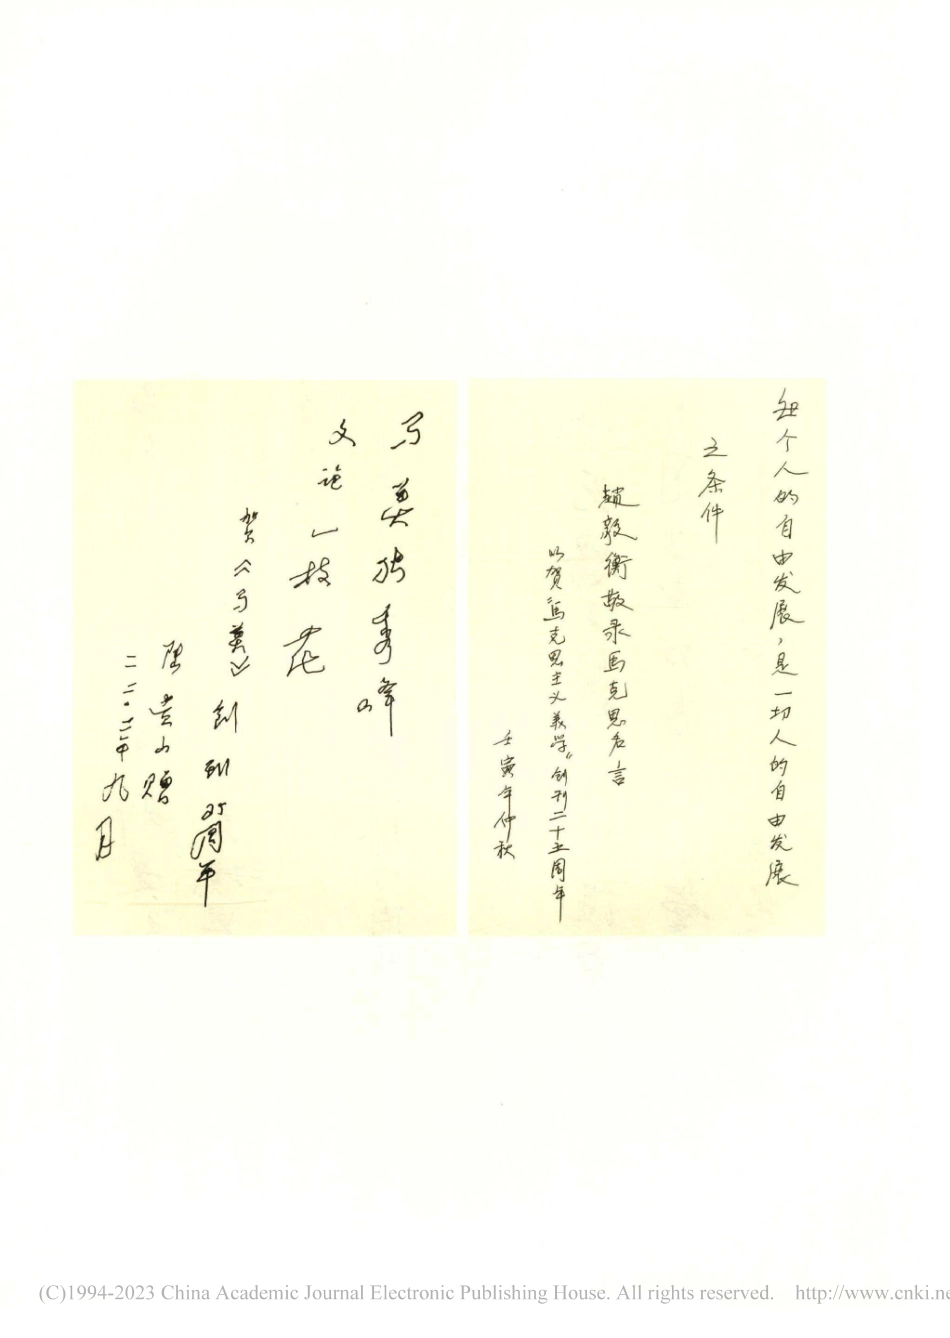 每个人的自由发展，是一切人的自由发展
之条件
趙毅衡敬录馬克思名言
以賀《馬克思主义義学》创刊二十五周年
壬寅年仲秋
马美独秀峰
文论一枝花
贺《马美》创刊25周年
陆贵山赠
二〇二二年九月
(C)1994-2023 China Academic Journal Electronic Publishing House. All rights reserved. http://www.cnki.ne